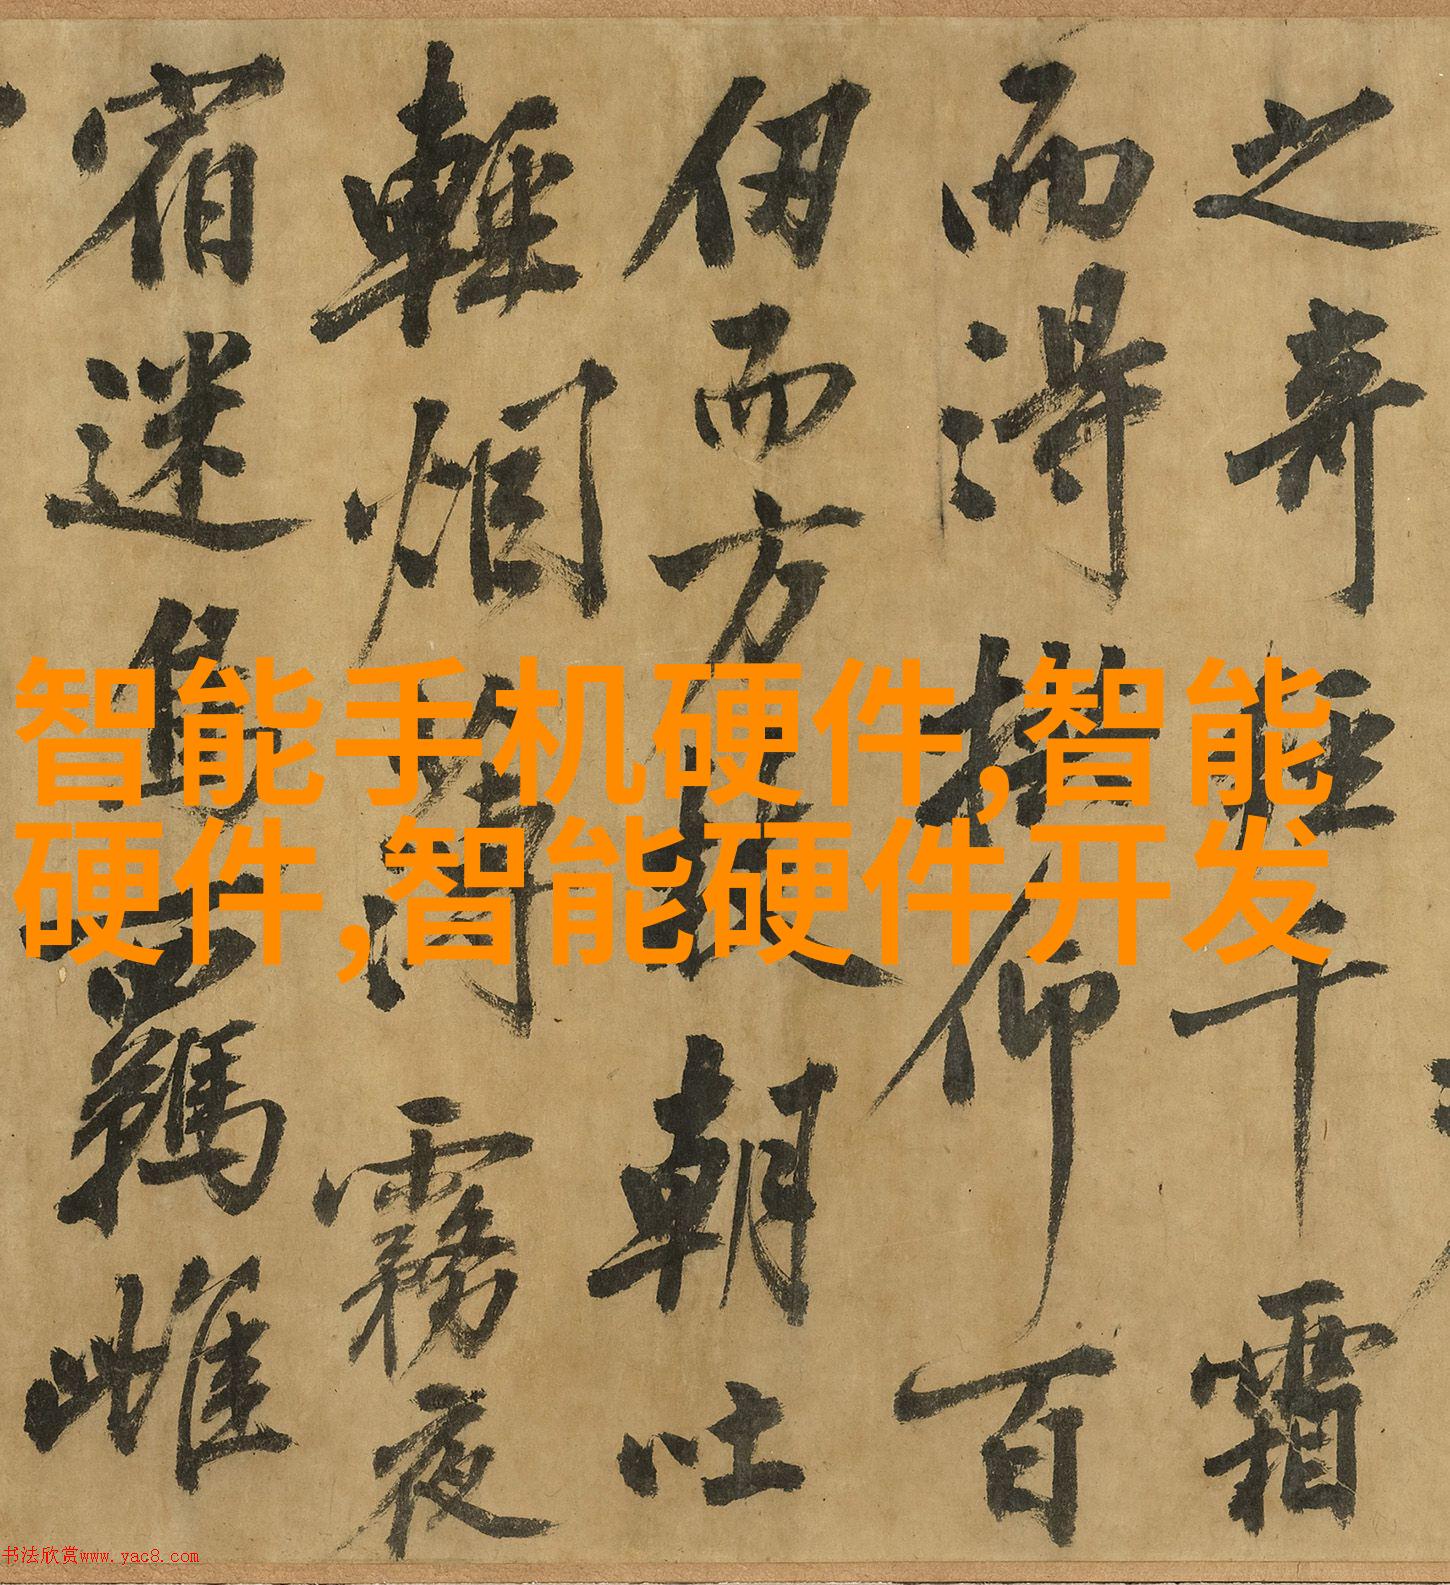 之奇千霜
而得仰百
伊而方朝吐
輕烟霧夜
宿迷羈雌
智能手机硬件,智能
硬件,智能硬件开发
书法欣赏www.yac8.com